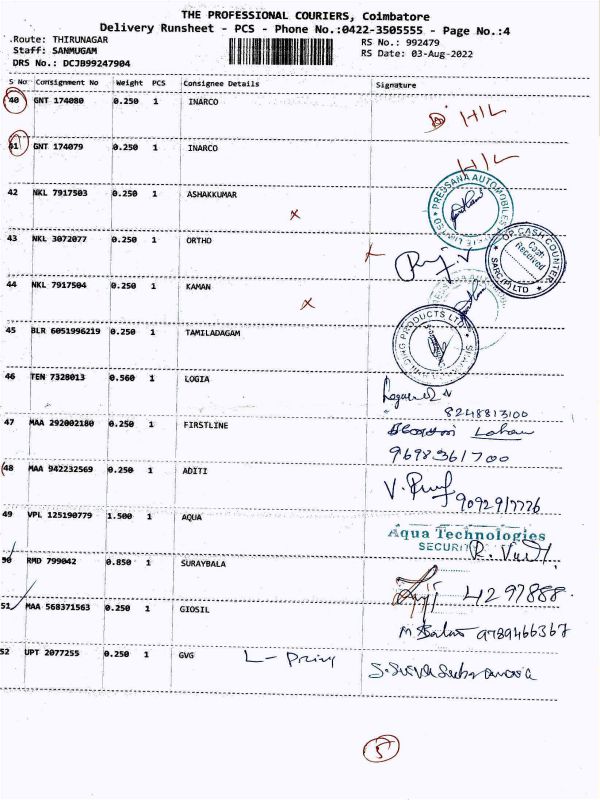 THE PROFESSIONAL COURIERS, Coimbatore
Delivery Runsheet - PCS - Phone No.:0422-3505555 - Page No.:4
Route: THIRUNAGAR RS No.: 992479
Staff: SANMUGAM RS Date: 03-Aug-2022
DRS No.: DCJB99247904
S No Consignment No Weight PCS Consignee Details Signature
40 GNT 174080 0.250 1 INARCO H/L
41 GNT 174079 0.250 1 INARCO H/L
42 NKL 7917503 0.250 1 ASHAKKUMAR X
PRESSANA AUTOMOBILES PRIVATE LIMITED
43 NKL 3072077 0.250 1 ORTHO
CASH COUNTER
Cash Received
44 NKL 7917504 0.250 1 KAMAN X
45 BLR 6051996219 0.250 1 TAMILADAGAM
PRODUCTS LTD
46 TEN 7328013 0.560 1 LOGIA
8248813100
47 MAA 292002180 0.250 1 FIRSTLINE
9698361700
48 MAA 942232569 0.250 1 ADITI V.
49 VPL 125190779 1.500 1 AQUA
Aqua Technologies
SECURITY
50 RMD 799042 0.850 1 SURAYBALA 4297888
51 MAA 568371563 0.250 1 GIOSIL
9789466367
52 UPT 2077255 0.250 1 GVG
5